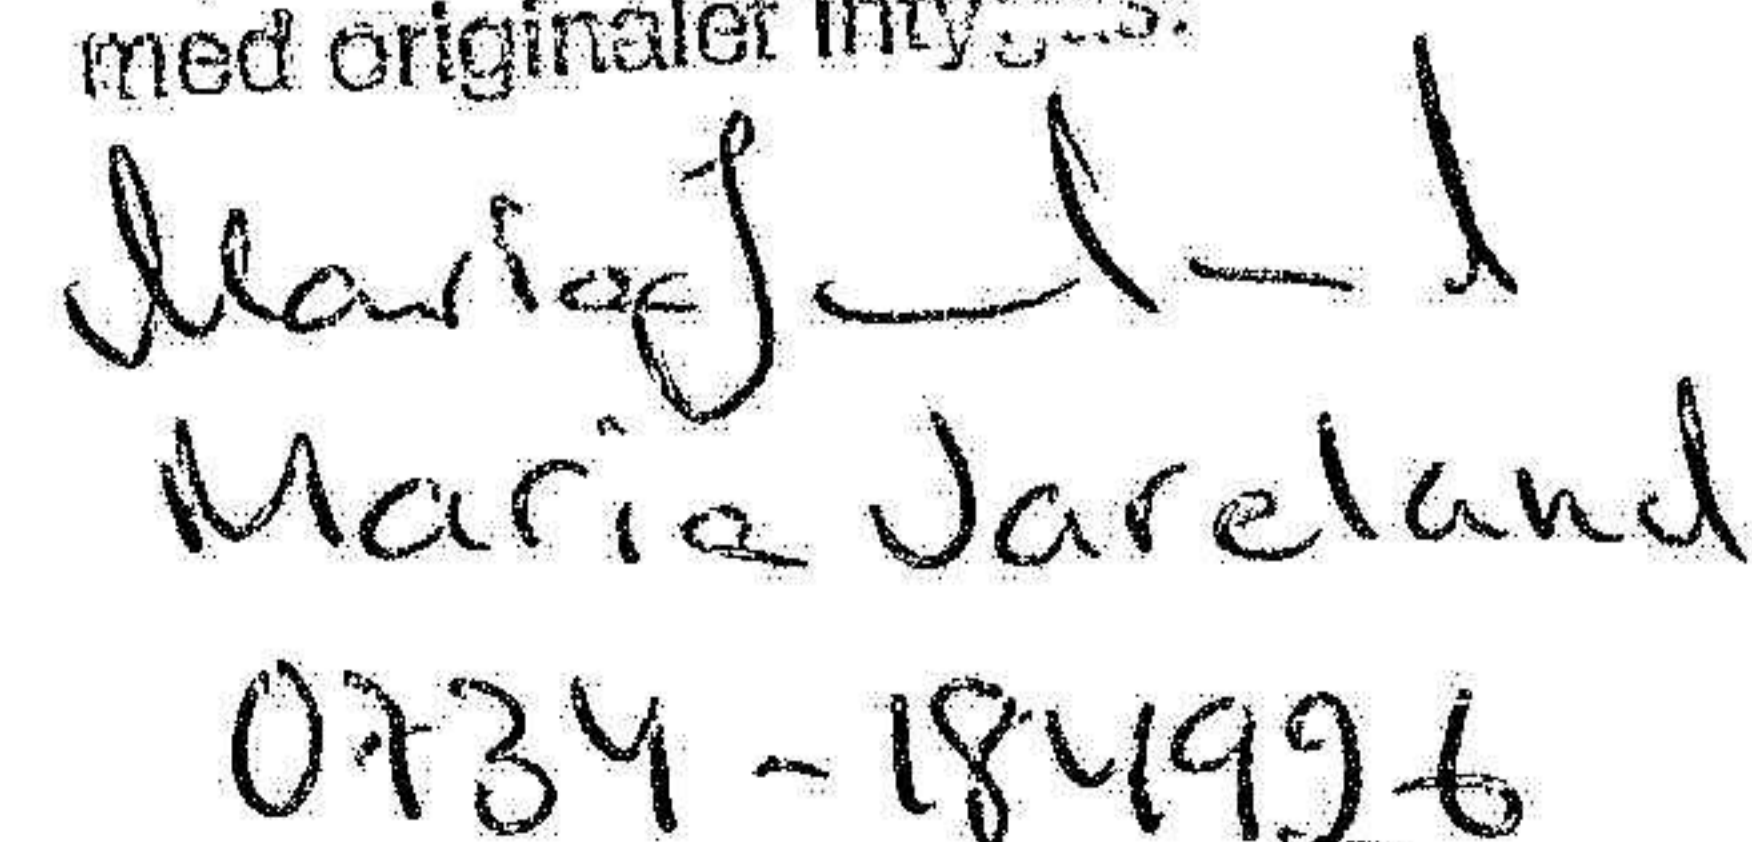 med originalet intygas.
Maria J
Maria Jareland
0734-184996